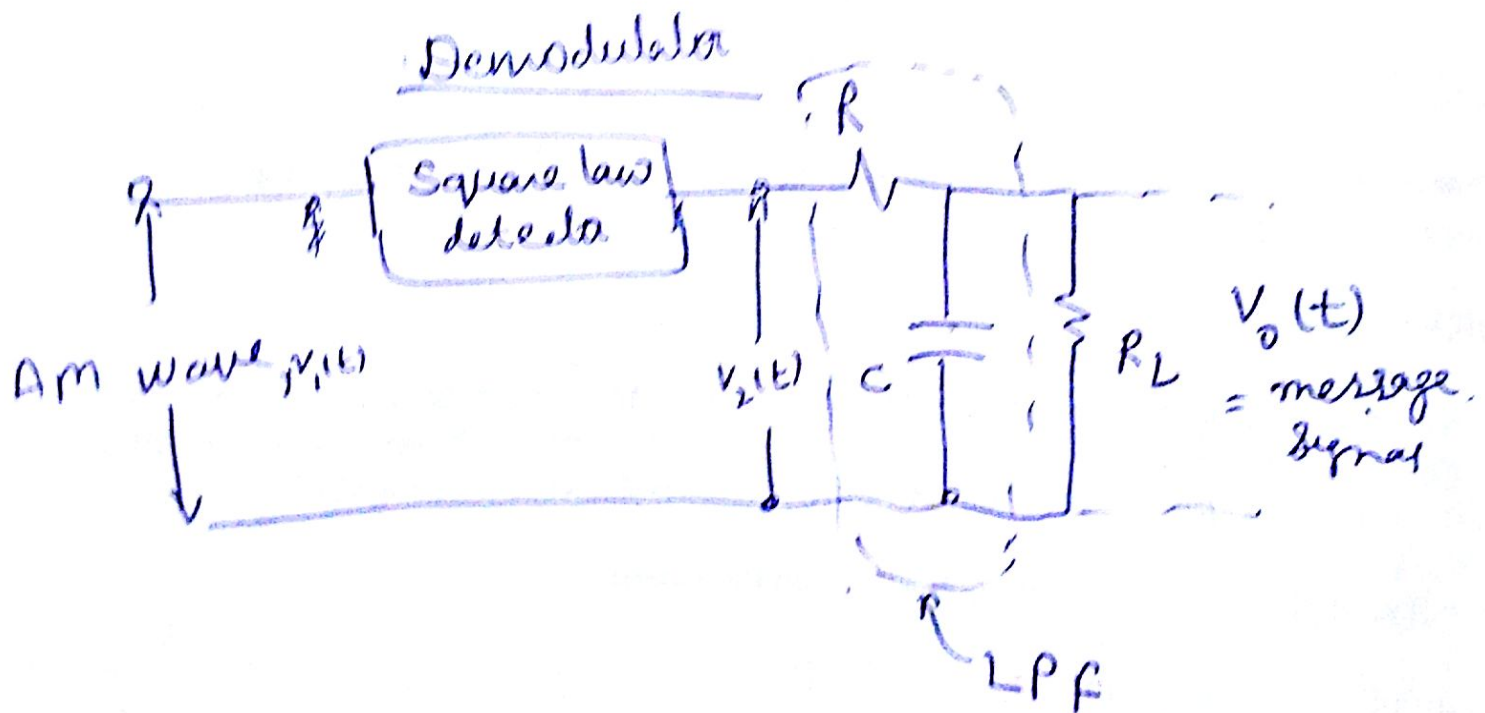 Demodulator
R
Square law
detector
AM wave, v₁(t)
v₂(t)
C
R_L
V₀(t)
= message
signal
LPF